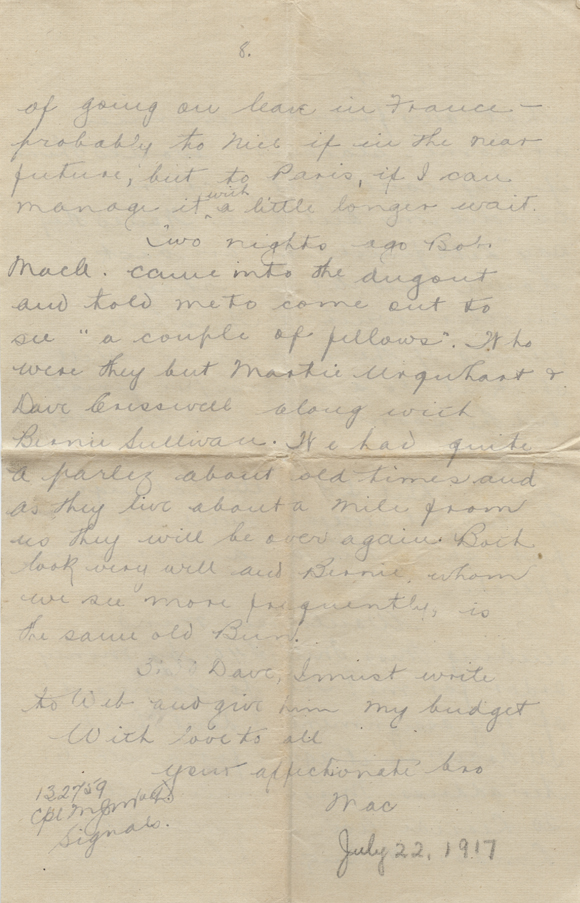 8.
of going on leave in France –
probably to Nice if in the near
future, but to Paris, if I can
manage it with a little longer wait.
Two nights ago Bob
MacK. came into the dugout
and told me to come out to
see "a couple of fellows". Who
were they but Martie Urquhart &
Dave Cresswell along with
Bernie Sullivan. We had quite
a parlez about old times and
as they live about a mile from
us they will be over again. Both
look very well and Bernie, whom
we see more frequently, is
the same old Bun.
Dave, I must write
to Web and give him my budget
With love to all
Your affectionate bro
Mac
132759
Cpl
Signals.
July 22, 1917